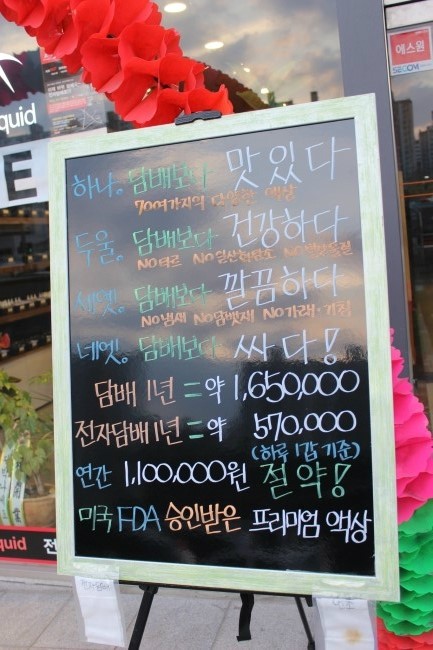 하나。 담배보다 맛있다
70여가지의 다양한 액상
두울。 담배보다 건강하다
No타르 No일산화탄소 No
세엣。 담배보다 깔끔하다
No냄새 No담뱃재 No가래·기침
네엣。 담배보다 싸다!
담배 1년 = 약 1,650,000
전자담배 1년 = 약 570,000
(하루 1갑 기준)
연간 1,100,000원 절약!
미국 FDA 승인받은 프리미엄 액상
quid
E
에스원
SECOM
quid 전